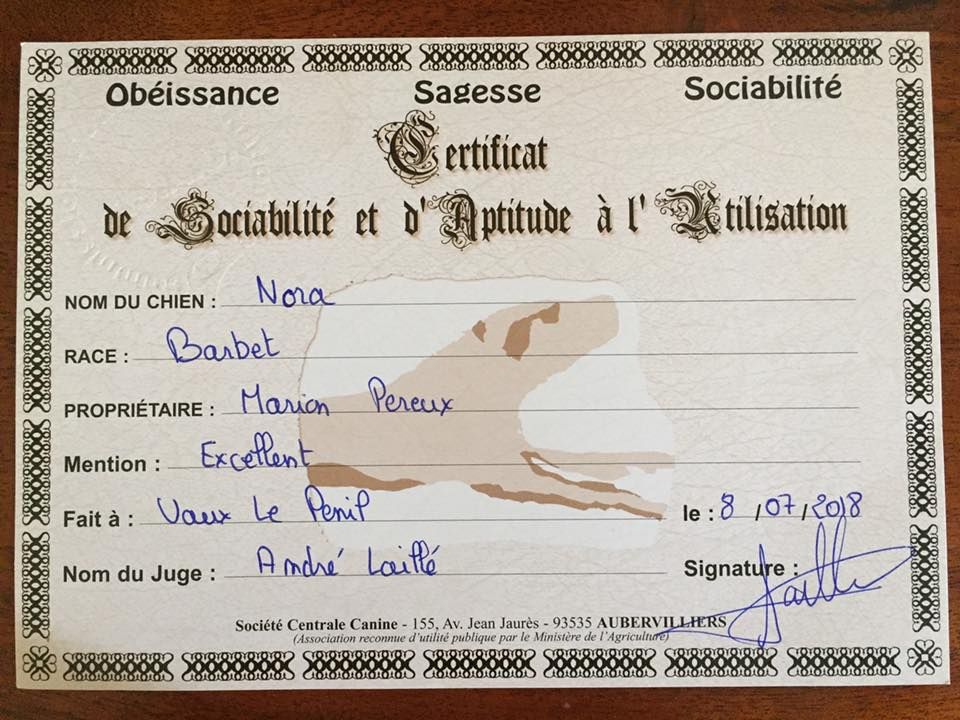 Obéissance Sagesse Sociabilité
Certificat
de Sociabilité et d'Aptitude à l'Utilisation
NOM DU CHIEN : Nora
RACE : Barbet
PROPRIÉTAIRE : Marion Pereux
Mention : Excellent
Fait à : Vaux Le Penil le : 8 / 07 / 2018
Nom du Juge : André Laillé Signature :
Société Centrale Canine - 155, Av. Jean Jaurès - 93535 AUBERVILLIERS
(Association reconnue d'utilité publique par le Ministère de l'Agriculture)